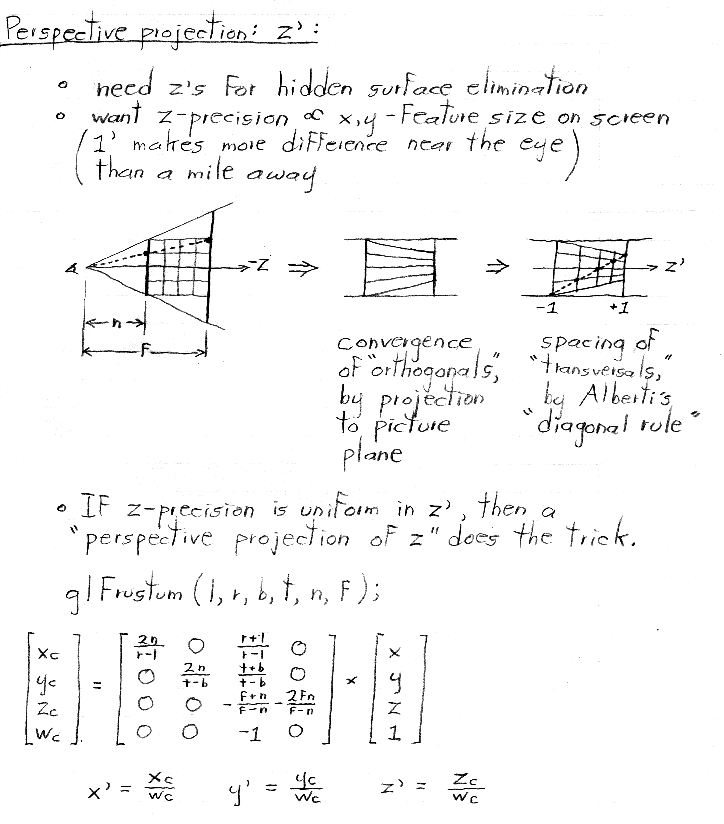 Perspective projection: z':
• need z's for hidden surface elimination
• want z-precision ∝ x,y-feature size on screen
(1' makes more difference near the eye
than a mile away)
-z ⇒ ⇒ z'
n
f
-1 +1
convergence
of "orthogonals,"
by projection
to picture
plane
spacing of
"transversals,"
by Alberti's
"diagonal rule"
• If z-precision is uniform in z', then a
"perspective projection of z" does the trick.
glFrustum (l, r, b, t, n, f);
[xc] = [2n/r-l 0 r+l/r-l 0] × [x]
[yc] [0 2n/t-b t+b/t-b 0] [y]
[zc] [0 0 -f+n/f-n -2fn/f-n] [z]
[wc] [0 0 -1 0] [1]
x' = xc/wc y' = yc/wc z' = zc/wc